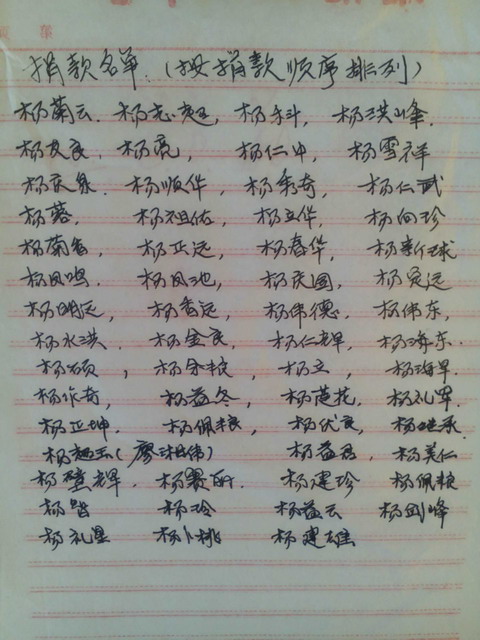 捐款名单.(按捐款顺序排列)
杨菊云. 杨志超, 杨科, 杨洪峰.
杨友良, 杨亮, 杨仁中, 杨雪祥
杨庆泉. 杨顺华, 杨秀奇, 杨仁武
杨蓉, 杨祖佑, 杨立华, 杨向珍
杨菊香, 杨正远, 杨春华, 杨新球
杨凤鸣, 杨凤池, 杨庆国, 杨定远
杨明远, 杨香远, 杨伟德, 杨伟东,
杨水洪, 杨金良, 杨仁辉, 杨海东.
杨硕, 杨余粮, 杨立, 杨海早.
杨作奇, 杨益冬, 杨莲花, 杨礼军.
杨正坤, 杨佩粮, 杨优良, 杨继承.
杨栖玉(廖湘伟) 杨益君, 杨美仁
杨壁辉, 杨赛丽, 杨建珍 杨佩粮
杨皓 杨玲 杨益云 杨剑峰
杨礼星 杨小桃 杨建雄